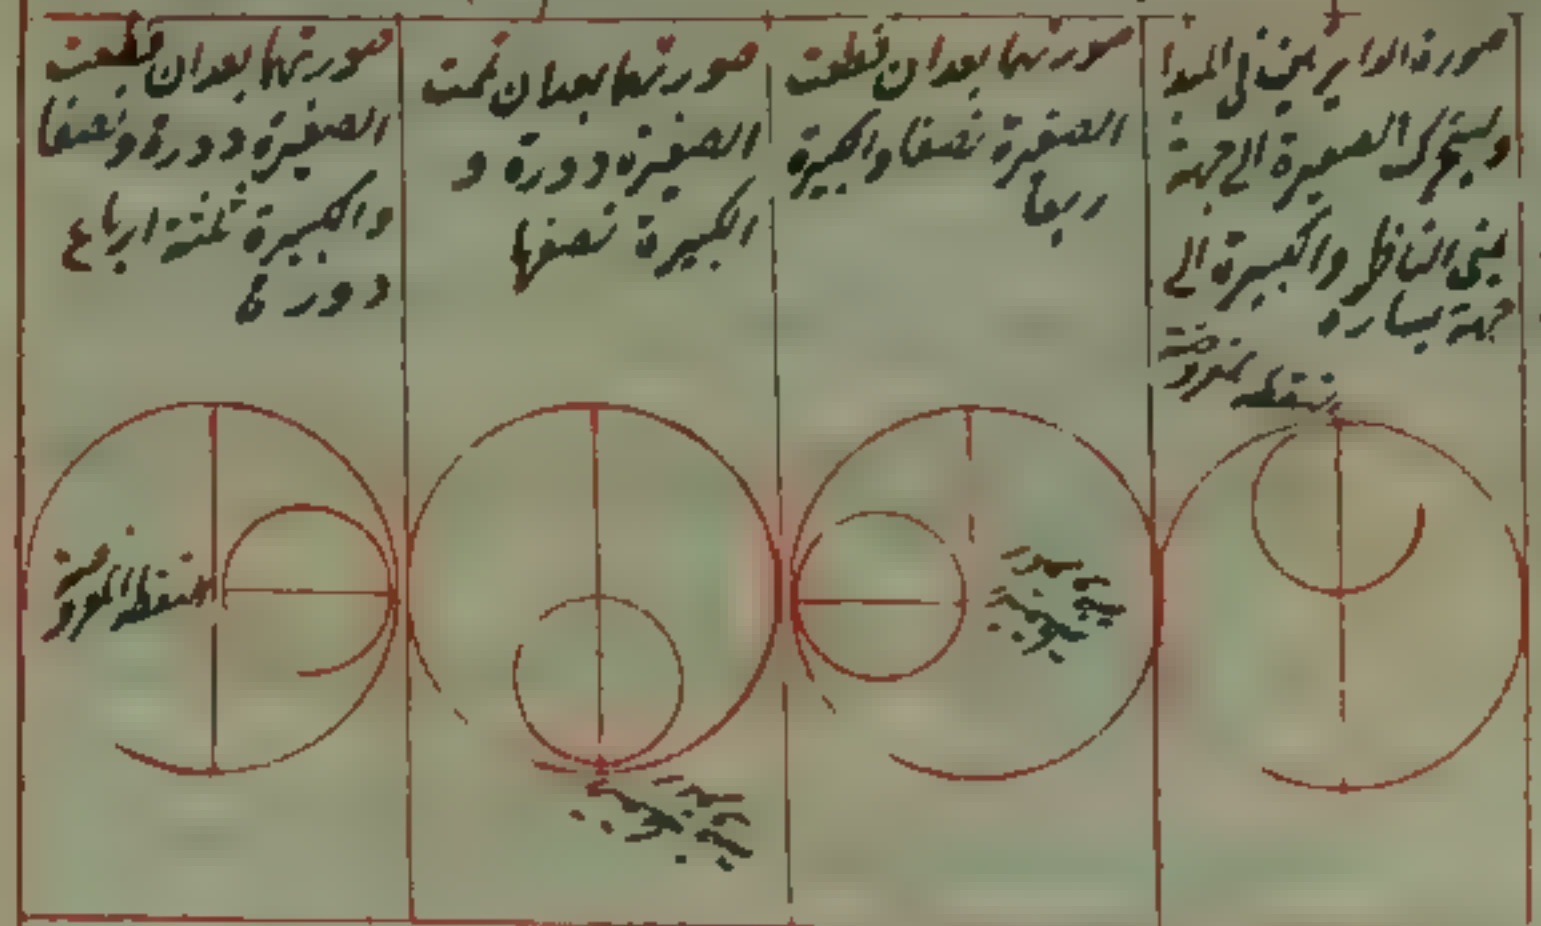 صورة الدائرتين في المبدا
وليتحرك الصغيرة الى جهة
يمين الناظر والكبيرة الى
جهة يساره
نقطة مفروضة
صورتها بعد ان قطعت
الصغيرة نصفا والكبيرة
ربعا
صورتها بعد ان تمت
الصغيرة دورة و
الكبيرة نصفها
صورتها بعد ان قطعت
الصغيرة دورة ونصفا
والكبيرة ثلثة ارباع
دورة
النقطة المفروضة